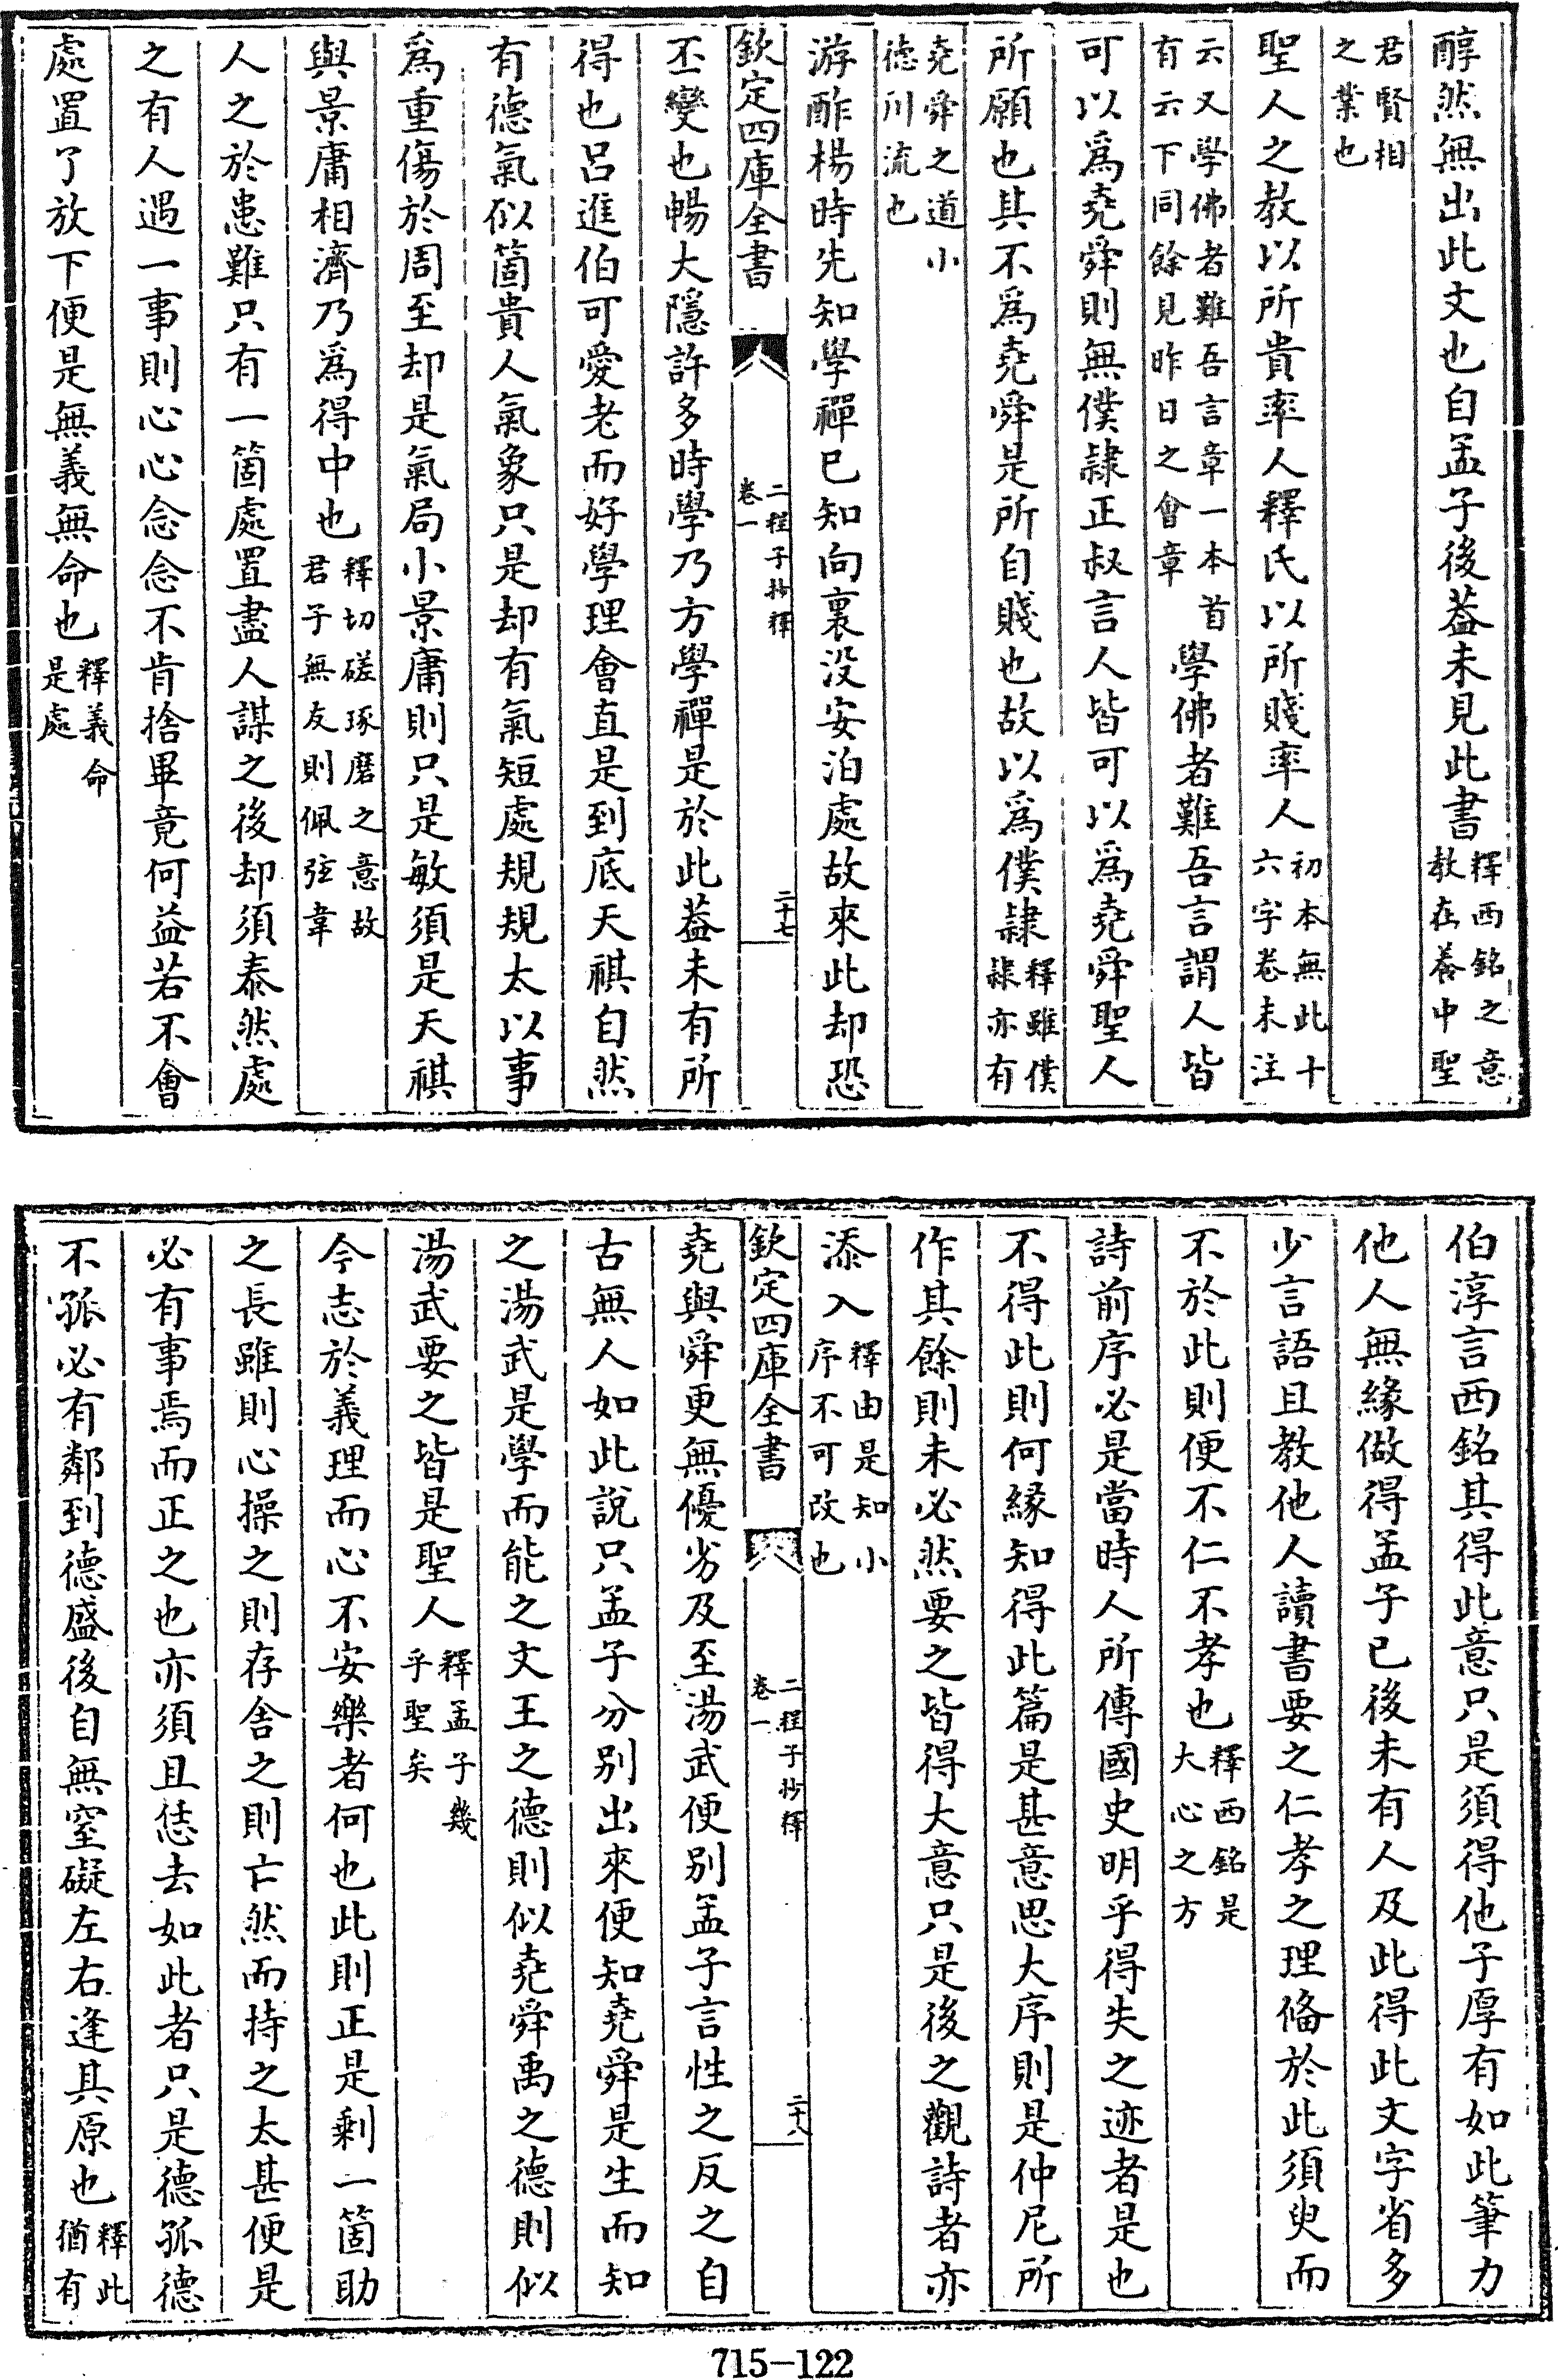 醇然無出此文也自孟子後葢未見此書釋西銘之意教在養中聖
君賢相之業也
聖人之教以所貴率人釋氏以所賤率人初本無此十六字卷末注
云又學佛者難吾言章一本首有云下同餘見昨日之會章學佛者難吾言謂人皆
可以爲堯舜則無僕隷正叔言人皆可以爲堯舜聖人
所願也其不爲堯舜是所自賤也故以爲僕隷釋雖僕隷亦有
堯舜之道小德川流也
游酢楊時先知學禪已知向裏没安泊處故來此却恐
欽定四庫全書 二程子抄釋 卷一 二十七
丕變也暢大隱許多時學乃方學禪是於此葢未有所
得也吕進伯可愛老而好學理會直是到底天祺自然
有德氣似箇貴人氣象只是却有氣短處規規太以事
爲重傷於周至却是氣局小景庸則只是敏須是天祺
與景庸相濟乃爲得中也釋切磋琢磨之意故君子無友則佩弦韋
人之於患難只有一箇處置盡人謀之後却須泰然處
之有人遇一事則心心念念不肯捨畢竟何益若不會
處置了放下便是無義無命也釋義命是處
伯淳言西銘其得此意只是須得他子厚有如此筆力
他人無緣做得孟子已後未有人及此得此文字省多
少言語且教他人讀書要之仁孝之理偹於此須臾而
不於此則便不仁不孝也釋西銘是大心之方
詩前序必是當時人所傳國史明乎得失之迹者是也
不得此則何緣知得此篇是甚意思大序則是仲尼所
作其餘則未必然要之皆得大意只是後之觀詩者亦
添入釋由是知小序不可改也
欽定四庫全書 二程子抄釋 卷一 二十八
堯與舜更無優劣及至湯武便别孟子言性之反之自
古無人如此説只孟子分别出來便知堯舜是生而知
之湯武是學而能之文王之德則似堯舜禹之德則似
湯武要之皆是聖人釋孟子幾乎聖矣
今志於義理而心不安樂者何也此則正是剩一箇助
之長雖則心操之則存舍之則亡然而持之太甚便是
必有事焉而正之也亦須且恁去如此者只是德孤德
不孤必有鄰到德盛後自無窒礙左右逢其原也釋此猶有
715-122